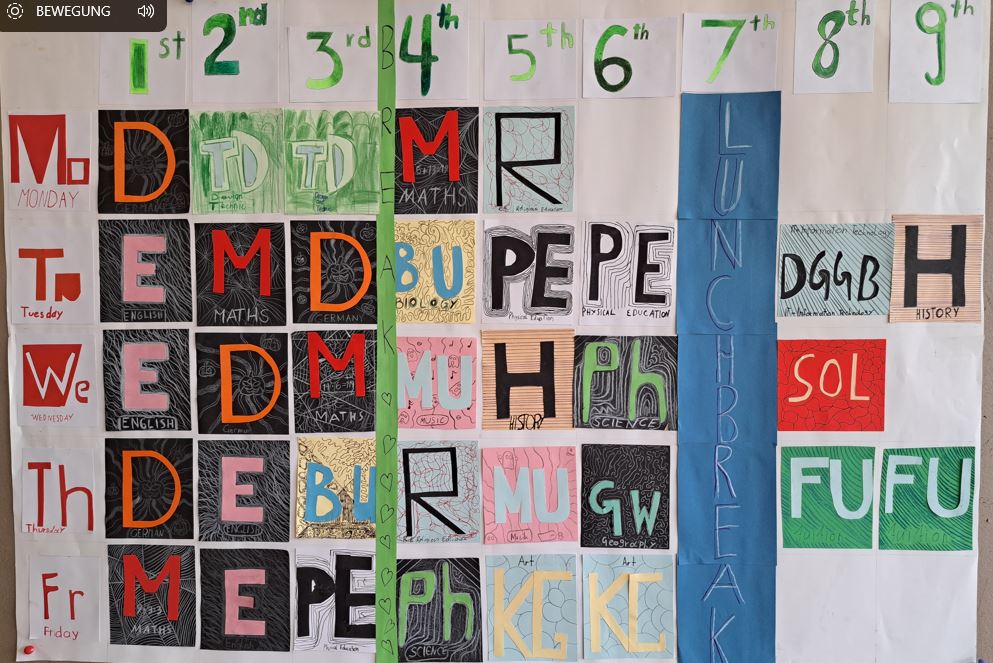 BEWEGUNG
1st 2nd 3rd 4th 5th 6th 7th 8th 9th
BREAK
LUNCHBREAK
Mo MONDAY
D GERMAN
TD Design Technic
TD Design Technic
M MATHS
R Religious Education
Tu Tuesday
E ENGLISH
M MATHS
D GERMANY
BU BIOLOGY
PE Physical Education
PE PHYSICAL EDUCATION
DGGB IT-Information Technology
H HISTORY
We WEDNESDAY
E ENGLISH
D German
M MATHS
MU MUSIC
H HISTORY
Ph SCIENCE
SOL
Th Thursday
D GERMAN
E ENGLISH
BU
R Religious Education
MU Music
GW Geography
FU
FU
Fr Friday
M MATHS
E English
PE Physical Education
Ph SCIENCE
KG Art
KG Art